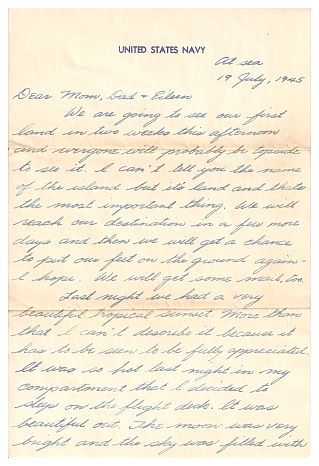 UNITED STATES NAVY
At sea
19 July, 1945
Dear Mom, Dad + Eileen
We are going to see our first
land in two weeks this afternoon
and everyone will probably be topside
to see it. I can't tell you the name
of the island but it's land and thats
the most important thing. We will
reach our destination in a few more
days and then we will get a chance
to put our feet on the ground again -
I hope. We will get some mail, too.
Last night we had a very
beautiful tropical sunset. More than
that I can't describe it because it
has to be seen to be fully appreciated.
It was so hot last night in my
compartment that I decided to
sleep on the flight deck. It was
beautiful out. The moon was very
bright and the sky was filled with